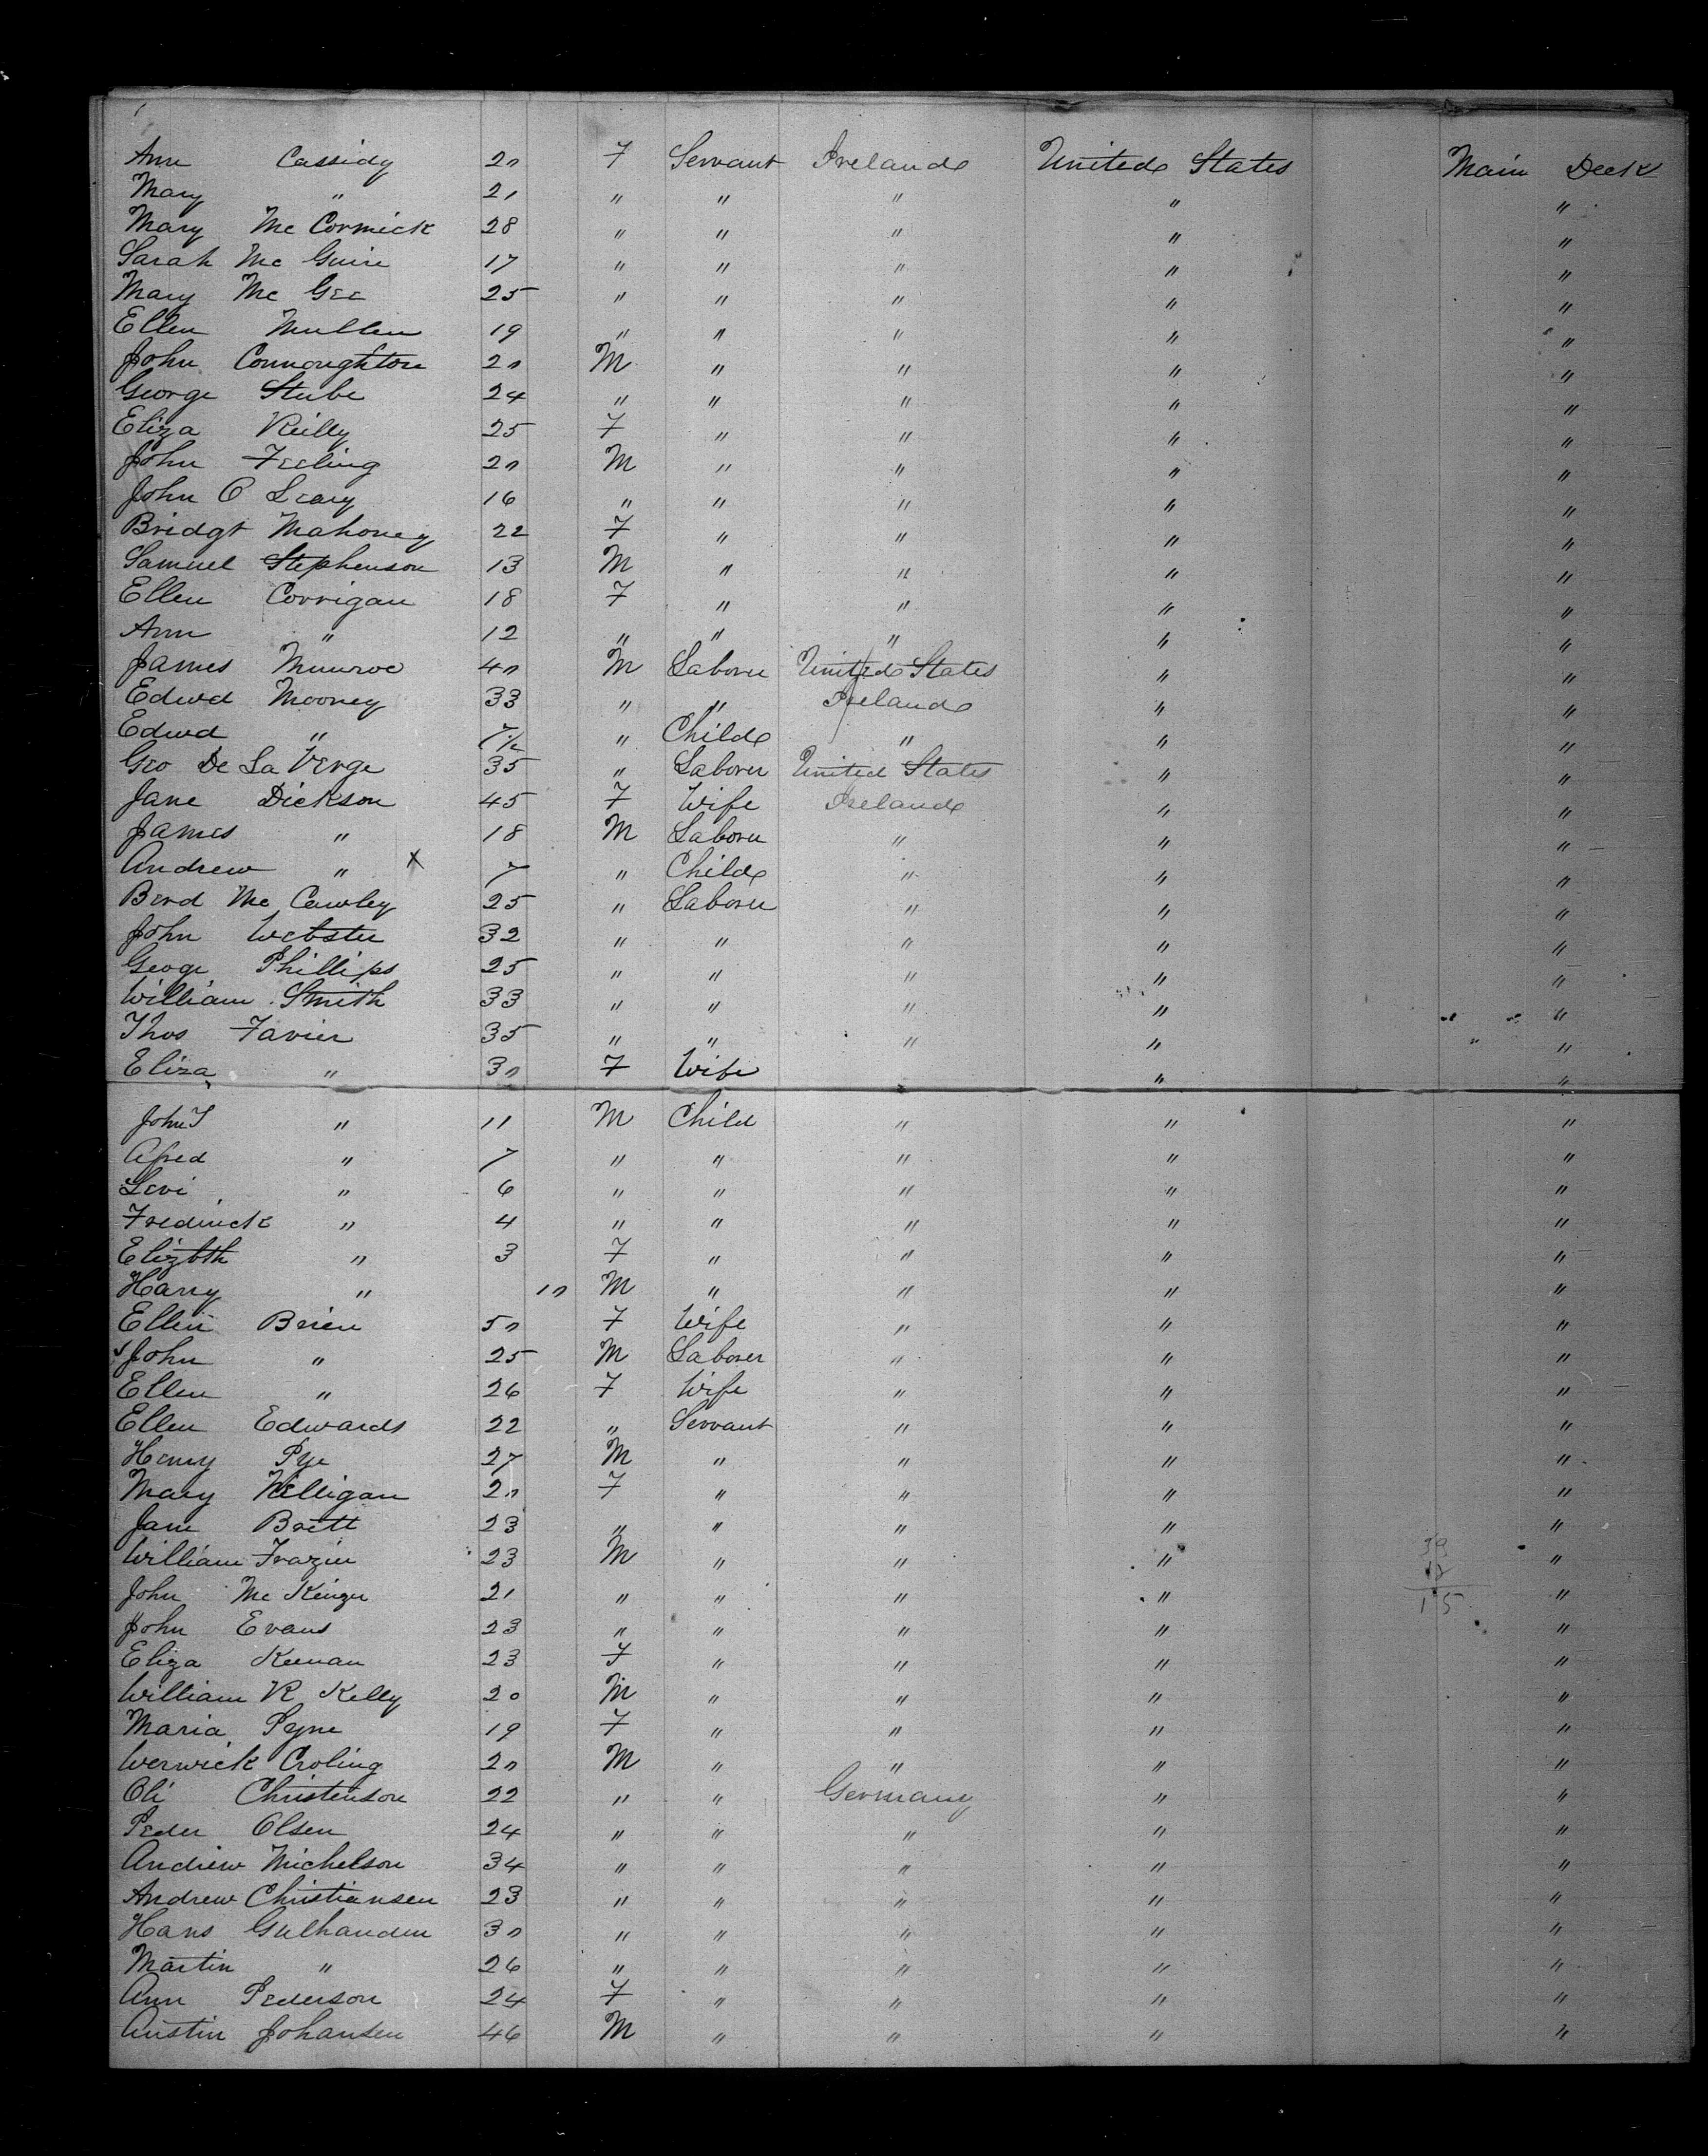 Ann Cassidy 20 F Servant Ireland United States Main Deck
Mary " 21 " " " " "
Mary Mc Cormick 28 " " " " "
Sarah Mc Guire 17 " " " " "
Mary Mc Gee 25 " " " " "
Ellen Mullen 19 " " " " "
John Connoughton 20 M " " " "
George Stube 24 " " " " "
Eliza Reilly 25 F " " " "
John Feeling 20 M " " " "
John O Leary 16 " " " " "
Bridgt Mahoney 22 F " " " "
Samuel Stephenson 13 M " " " "
Ellen Corrigan 18 F " " " "
Ann " 12 " " " " "
James Munroe 40 M Laborer United States " "
Edwd Mooney 33 " " Ireland " "
Edwd " " Child " " "
Geo De La Verge 35 " Laborer United States " "
Jane Dickson 45 F Wife Ireland " "
James " 18 M Laborer " " "
Andrew " x 7 " Child " " "
Bernd Mc Cawley 25 " Laborer " " "
John Webster 32 " " " " "
Geoge Phillips 25 " " " " "
William Smith 33 " " " " "
Thos Favier 35 " " " " "
Eliza " 30 F Wife " " "
John T " 11 M Child " " "
Afred " 7 " " " " "
Levi " 6 " " " " "
Fredrick " 4 " " " " "
Elizbth " 3 F " " " "
Harry " 10 M " " " "
Ellen Brien 50 F Wife " " "
John " 25 M Laborer " " "
Ellen " 26 F Wife " " "
Ellen Edwards 22 " Servant " " "
Henry Pye 27 M " " " "
Mary 20 F " " " "
Jane Brett 23 " " " " "
William Frazier 23 M " " " "
John Mc 21 " " " " "
John Evans 23 " " " " "
Eliza Keenan 23 F " " " "
William R Kelly 20 M " " " "
Maria Pyne 19 F " " " "
Werwick Croling 20 M " " " "
Oli Christenson 22 " " Germany " "
Peder Olsen 24 " " " " "
Andrew Michelson 34 " " " " "
Andrew Christiansen 23 " " " " "
Hans 30 " " " " "
Martin " 26 " " " " "
Ann Pederson 24 F " " " "
Austin Johansen 46 M " " " "